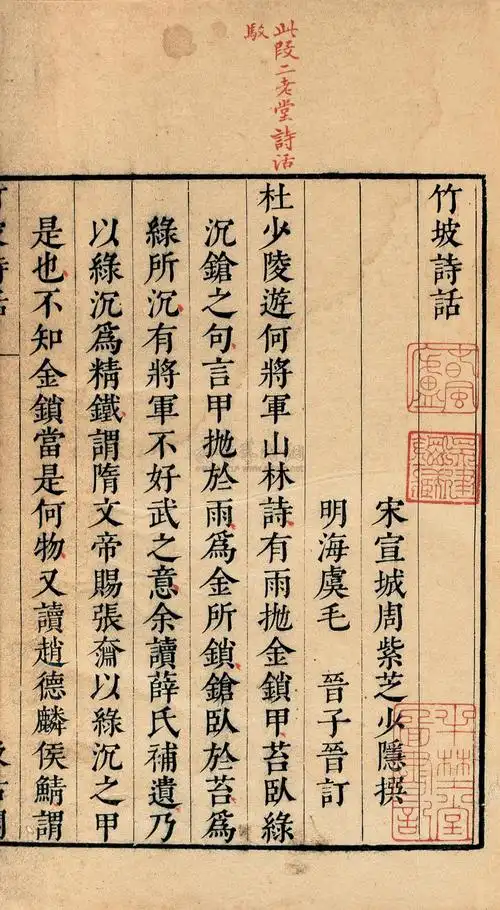 此段二老堂詩話
駁
竹坡詩話
宋宣城周紫芝少隱撰
明海虞毛　晉子晉訂
杜少陵遊何將軍山林詩有雨拋金鎖甲苔臥綠
沉鎗之句言甲拋於雨爲金所鎖鎗臥於苔爲
綠所沉有將軍不好武之意余讀薛氏補遺乃
以綠沉爲精鐵謂隋文帝賜張齋以綠沉之甲
是也不知金鎖當是何物又讀趙德麟侯鯖謂